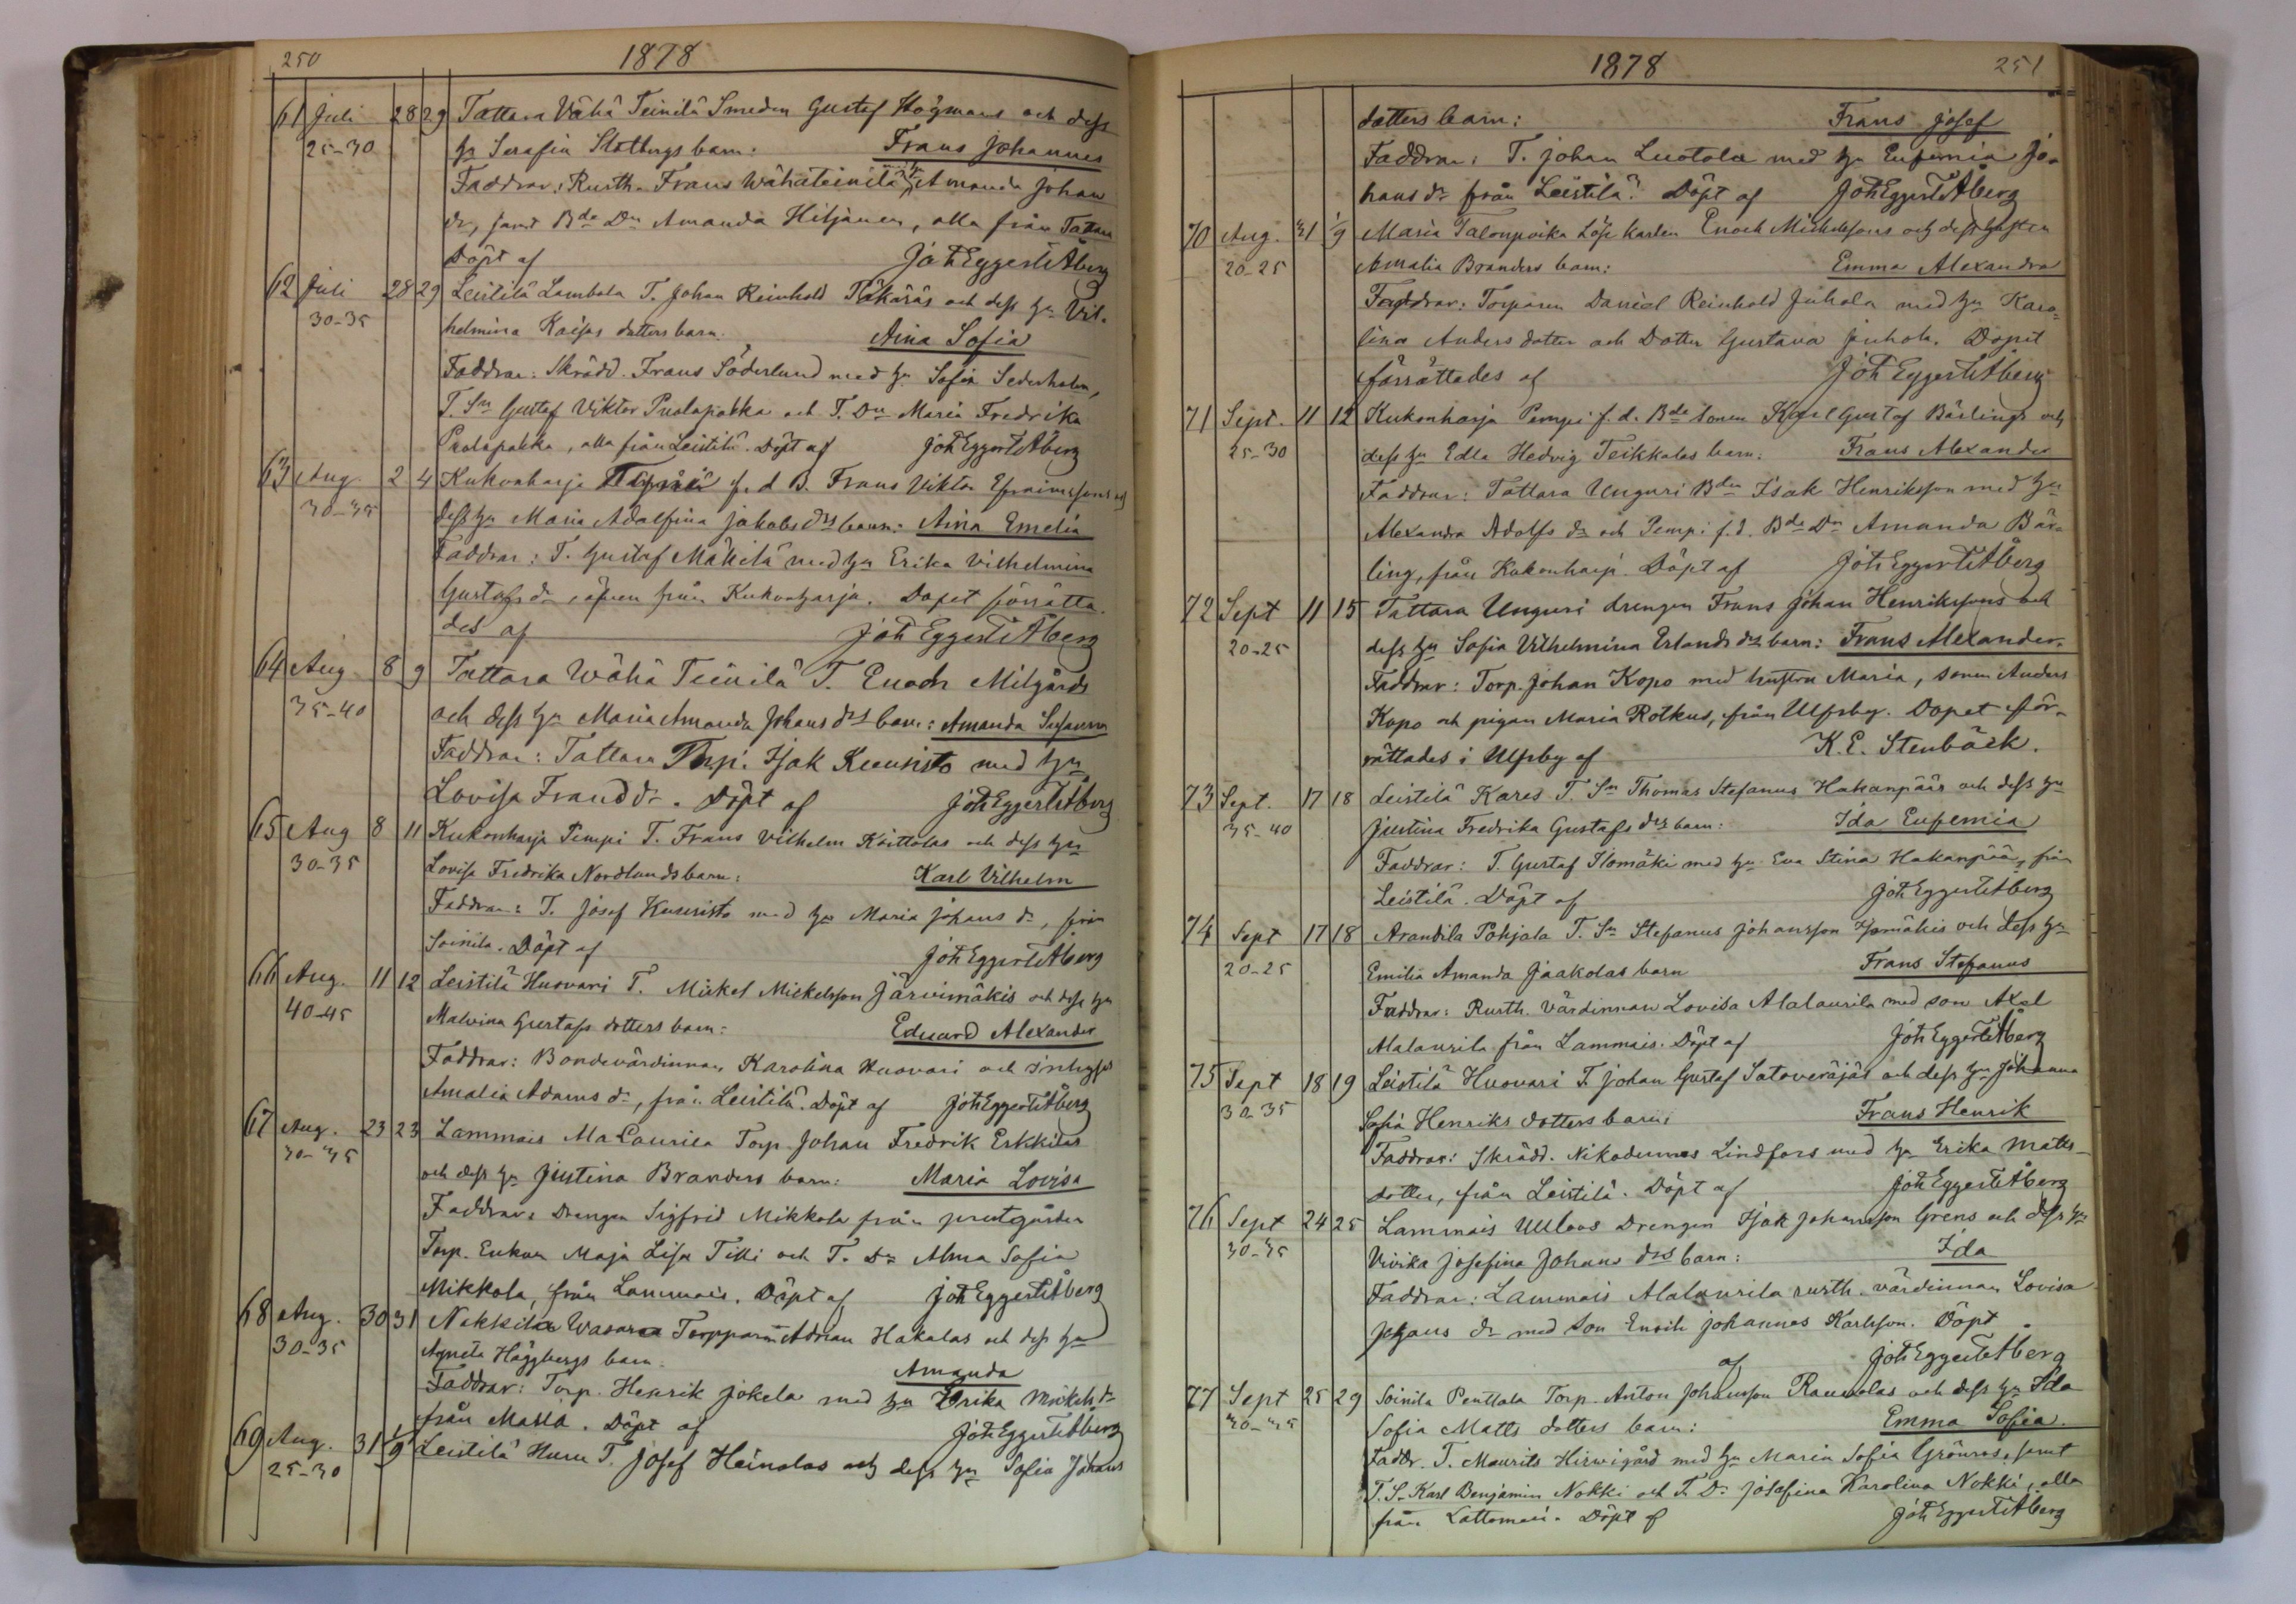 250 1878
61 Juli 28 29 Tattara Vähä Teinilä Smeden Gustaf Högmans och dess
25-30 hu Serafia Stolbergs barn: Frans Johannes
Faddrar: Rusth. Frans Wähäteinilä, Amanda Johans
dr, samt Bde Dn Amanda Hiljanen, alla från Tattara
Döpt af Joh Eggert Åberg
62 Juli 28 29 Leistilä Lambala T. Johan Reinhold Täkäräs och dess hu Vil-
30-35 helmina Kaisas dotters barn. Aina Sofia
Faddrar: Skrädd. Frans Söderlund med hu Sofia Sederholm,
T. Sn Gustaf Viktor Puolapakka och T. Dn Maria Fredrika
Puolapakka, alla från Leistilä. Döpt af Joh Eggert Åberg
63 Aug. 2 4 Kukonharja f. d B. Frans Viktor Efraimssons och
30-35 dess hu Maria Adolfina Jakobs drs barn: Aina Emelia
Faddrar: T. Gustaf Mäkilä med hu Erika Vilhelmina
Gustafs dr, äfven från Kukonharja. Dopet förrätta-
des af Joh Eggert Åberg
64 Aug 8 9 Tattara Wähä Teinilä T. Enoch Milgårds
35-40 och dess hu Maria Amanda Johans drs barn: Amanda Susanna
Faddrar: Tattara Torp. Isak Kuusisto med hu
Lovisa Frans dr. Döpt af Joh Eggert Åberg
65 Aug 8 11 Kukonharja Pempi T. Frans Vilhelm Koittolas och dess hu
30-35 Lovisa Fredrika Nordlunds barn: Karl Vilhelm
Faddrar: T. Josef Kuusisto med hu Maria Johans dr, från
Soinila. Döpt af Joh Eggert Åberg
66 Aug. 11 12 Leistilä Huovari T. Mickel Mickelsson Järvimäkis och dess hu
40-45 Malvina Gustafs dotters barn: Eduard Alexander
Faddrar: Bondevärdinnan Karolina Huovari och inhyses
Amalia Adams dr, från Leistilä. Döpt af Joh Eggert Åberg
67 Aug. 23 23 Lammais Ala Laurila Torp. Johan Fredrik Erkkilas
30-35 och dess hu Justina Branders barn: Maria Lovisa
Faddrar: Drengen Sigfrid Mikkola från prestgården
Torp. Enkan Maja Lisa Tilli och T. Dr Alma Sofia
Mikkola, från Lammais. Döpt af Joh Eggert Åberg
68 Aug. 30 31 Nakkila Wasara Torpparen Adrian Hakalas och dess hu
30-35 Agneta Häggbergs barn. Amanda
Faddrar: Torp. Henrik Jokela med hu Erika Mickels dr
från Masia. Döpt af Joh Eggert Åberg
69 Aug. 31 1/9 Leistilä Huru T. Josef Heinolas och dess hu Sofia Johans
25-30
1878 251
dotters barn: Frans Josef
Faddrar: T. Johan Luotola med hu Eufemia Jo-
hans dr från Leistilä. Döpt af Joh Eggert Åberg
70 Aug. 31 1/9 Maria Talonpoika Lösk karlen Enoch Michelssons och dess hustru
20-25 Amalia Branders barn: Emma Alexandra
Faddrar: Torparen Daniel Reinhold Juhola med hu Karo-
lina Anders dotter och Dotter Gustava Juhola. Dopet
förrättades af Joh Eggert Åberg
71 Sept. 11 12 Kukonharja Pempi f. d. Bde sonen Karl Gustaf Bärlings och
25-30 dess hu Edla Hedvig Teikkalas barn: Frans Alexander
Faddrar: Tattara Unguri Bden Isak Henriksson med hu
Alexandra Adolfs dr och Pempi f. d. Bde Dn Amanda Bär-
ling, från Kukonharj. Döpt af Joh Eggert Åberg
72 Sept 11 15 Tattara Unguri drengen Frans Johan Henrikssons och
20-25 dess hu Sofia Vilhelmina Erlands drs barn: Frans Alexander.
Faddrar: Torp. Johan Kopo med hustru Maria, sonen Anders
Kopo och pigan Maria Rotkus, från Ulfsby. Dopet för-
rättades i Ulfsby af K. E. Stenbäck.
73 Sept. 17 18 Leistilä Kares T. Sn Thomas Stefanus Hakanpääs och dess hu
35-40 Justina Fredrika Gustafs drs barn: Ida Eufemia
Faddrar: T. Gustaf Ilomäki med hu Eva Stina Hakanpää, från
Leistilä. Döpt af Joh Eggert Åberg
74 Sept 17 18 Arandila Pohjala T. Sn Stefanus Johansson Isomäkis och dess hu
20-25 Emilia Amanda Jaakolas barn Frans Stefanus
Faddrar: Rusth. Värdinnan Lovisa Alalaurila med son Axel
Alalaurila från Lammais. Döpt af Joh Eggert Åberg
75 Sept 18 19 Leistilä Huovari T. Johan Gustaf Satoveräjäs och dess hu Johanna
30-35 Sofia Henriks dotters barn: Frans Henrik
Faddrar: Skrädd. Nikodemus Lindfors med hu Erika Matts-
dotter, från Leistilä. Döpt af Joh Eggert Åberg
76 Sept 24 25 Lammais Ulloos Drengen Isak Johansson Grens och dess hu
30-35 Vivika Josefina Johans drs barn: Ida
Faddrar: Lammais Alalaurila rusth. värdinnan Lovisa
Johans dr med son Johannes Karlsson. Döpt
af Joh Eggert Åberg
77 Sept 25 29 Soinila Penttala Torp. Anton Johansson Raunolas och dess hu Ida
30-35 Sofia Matts dotters barn: Emma Sofia.
Faddr. T. Maurits Hirvigård med hu Maria Sofia Grönros, samt
T. S. Karl Benjamin Nokki och T. Dr Josefina Karolina Nokki, alla
från Lattomeri. Döpt af Joh Eggert Åberg